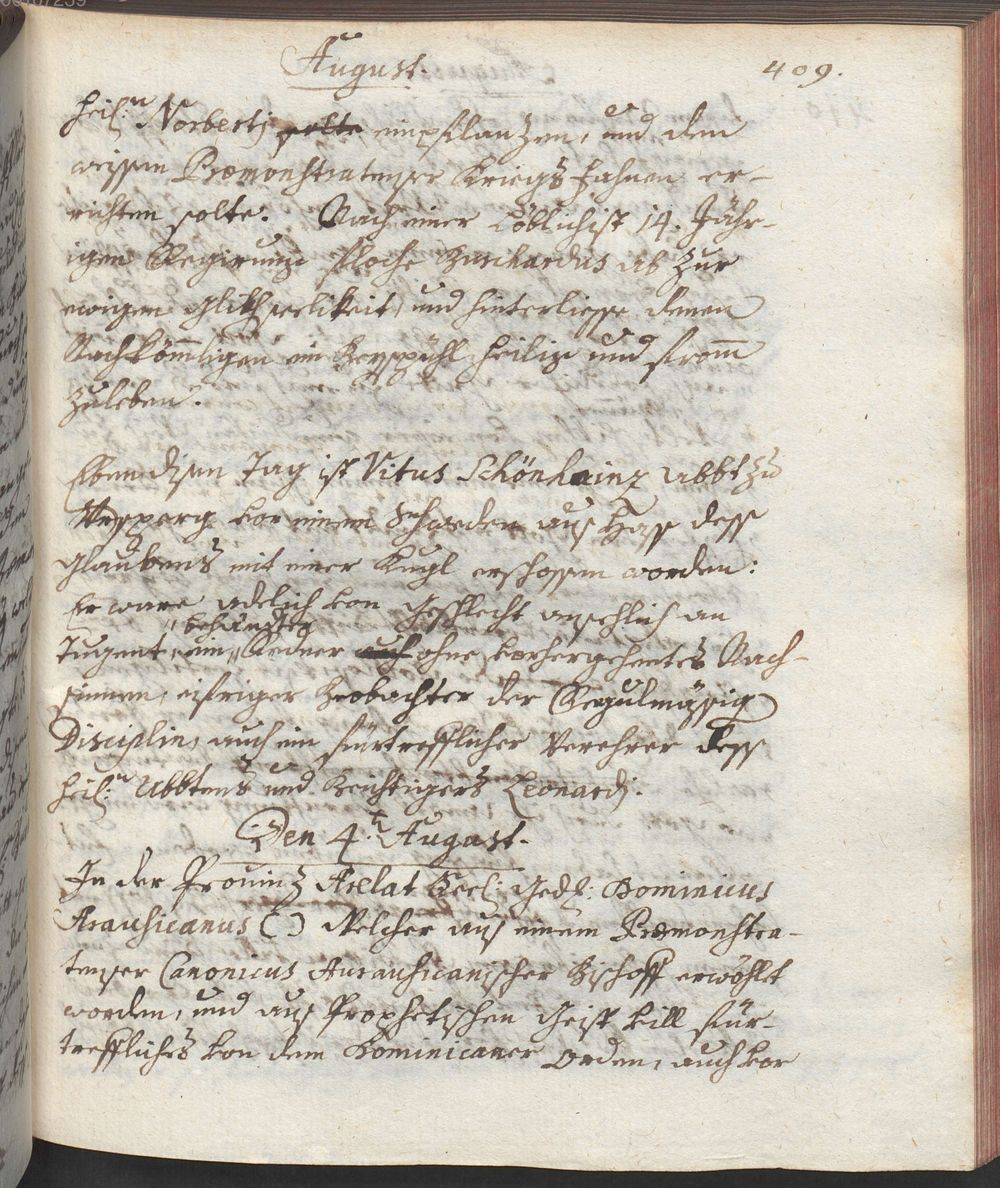 August.
409.
heil:n Norberti solte einpflantzen, und dem
weissen Præmonstratenser Kriegs fahnen er-
richten solte. Nach einer Löblichst 14. Jähr-
igen Regirung floche Burchardus ab zur
ewigen Glikhseelikeit, und hinterliesse denen
Nachkömligen ein Beyspühl heilig und from̄
zuleben.
Eben disen Tag ist Vitus Schönhainz Abbt zu
von einem Schweden aus Hass dess
Glaubens mit einer Kugl erschossen worden:
Er ware adelich von Geschlecht ansehlich an
Tugent, ein behänder Redner auch ohne vorhergehentes Nach-
sinnen, eifriger Beobachter der Regulmässig
Disciplin, auch ein fürtrefflicher Verehrer dess
heil:n Abbtens und Beichtigers Leonardi.
Den 4.t August.
In der Prouinz Arelat Seel: Ged: Dominicus
Arausicanus () Welcher aus einem Præmonstra-
tenser Canonicus Aurausicanischer Bischoff erwöhlt
worden, und aus Prophetischen Geist vill für-
treffliches von dem Dominicaner Orden, auch vor